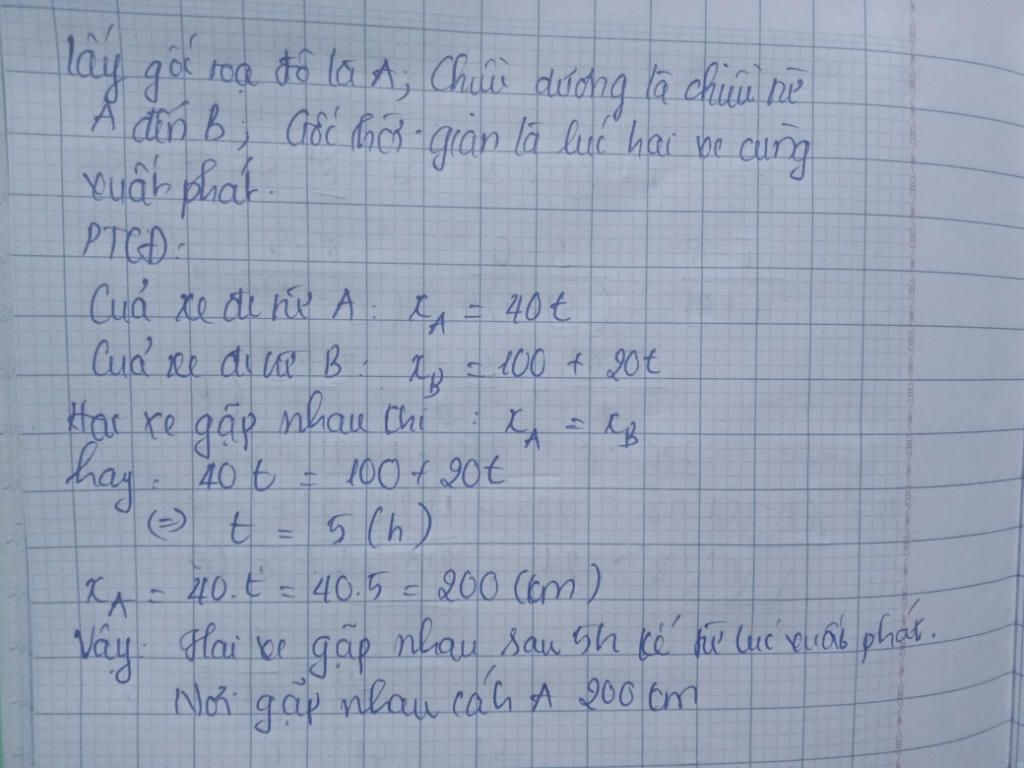 Lấy gốc toạ độ là A; Chiều dương là chiều từ
A đến B; Gốc thời gian là lúc hai xe cùng
xuất phát.
PTCĐ:
Của xe đi từ A: x_A = 40t
Của xe đi từ B: x_B = 100 + 20t
Hai xe gặp nhau khi : x_A = x_B
hay: 40t = 100 + 20t
(=) t = 5 (h)
x_A = 40.t = 40.5 = 200 (cm)
Vậy: Hai xe gặp nhau sau 5h kể từ lúc xuất phát.
Nơi gặp nhau cách A 200 cm